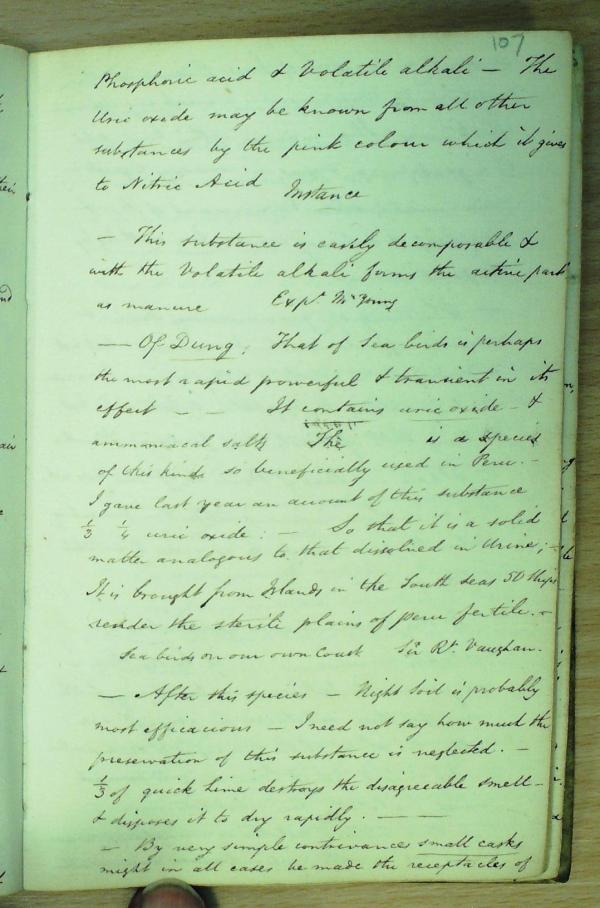 107
Phosphoric acid & Volatile alkali – The
Uric oxide may be known from all other
substances by the pink colour which it gives
to Nitric Acid Instance
– This substance is easily decomposable &
with the Volatile alkali forms the active part
as manure Expt. Mr Young
— Of Dung; That of Sea birds is perhaps
the most rapid powerful & transient in its
effect – – It contains uric oxide – &
ammoniacal salts The is a species
of this kind so beneficially used in Peru. –
I gave last year an account of this substance
1/3 1/4 uric oxide: – So that it is a solid
matter analogous to that dissolved in Urine; –
It is brought from Islands in the South seas 50 Ships
render the sterile plains of Peru fertile. –
Sea birds on our own Coast Sir Rt. Vaughan.
– After this species – Night Soil is probably
most efficacious – I need not say how much the
preservation of this substance is neglected. –
1/3 of quick lime destroys the disagreeable smell –
& disposes it to dry rapidly. — —
– By very simple contrivances small casks
might in all cases be made the receptacles of